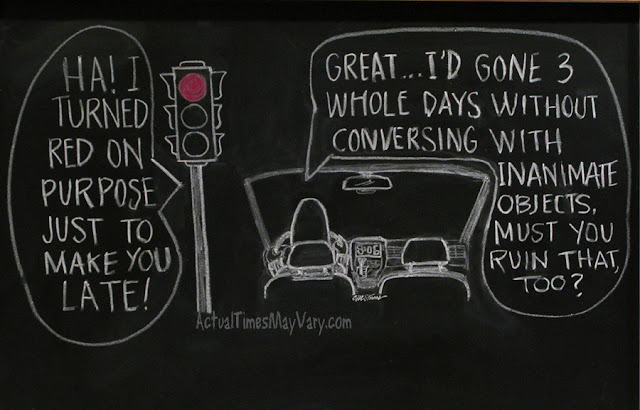 HA! I
TURNED
RED ON
PURPOSE
JUST TO
MAKE YOU
LATE!
GREAT...I'D GONE 3
WHOLE DAYS WITHOUT
CONVERSING WITH
INANIMATE
OBJECTS,
MUST YOU
RUIN THAT,
TOO?
ActualTimesMayVary.com